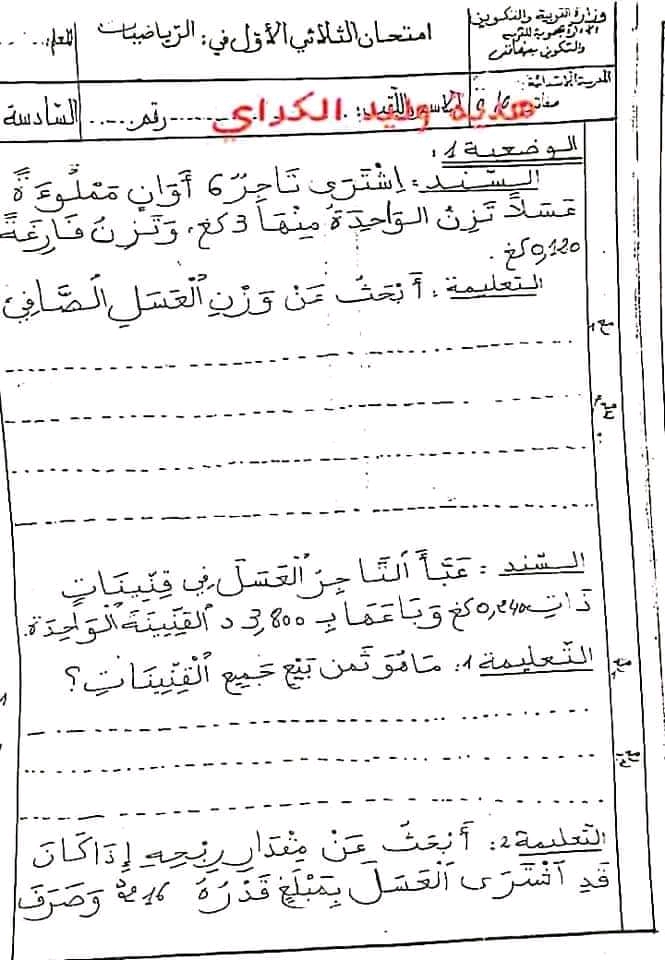 وزارة التربية والتكوين
والتكوين بصفاقس
امتحان الثلاثي الأول في: الرياضيات
المعلم:
المدرسة الابتدائية
هدية وليد الكراي
رقم
السادسة
الوضعية 1:
السند: اِشْتَرَى تَاجِرٌ 6 أَوَانٍ مَمْلُوءَةً
عَسَلاً تَزِنُ الوَاحِدَةُ مِنْهَا 3 كغ، وَتَزِنُ فَارِغَةً
0,120 كغ.
التعليمة: أَبْحَثُ عَنْ وَزْنِ الْعَسَلِ الصَّافِي
مع1
السند: عَبَّأَ التَّاجِرُ الْعَسَلَ فِي قِنِّينَاتٍ
ذَاتِ 0,240 كغ وَبَاعَهَا بِـ 3,800 د القِنِّينَةَ الْوَاحِدَةَ.
التعليمة 1: مَا هُوَ ثَمَن بَيْعِ جَمِيعِ الْقِنِّينَاتِ؟
التعليمة 2: أَبْحَثُ عَنْ مِقْدَارِ رِبْحِهِ إِذَا كَانَ
قَدِ اشْتَرَى الْعَسَلَ بِمَبْلَغٍ قَدْرُهُ 216 د وَصَرَفَ